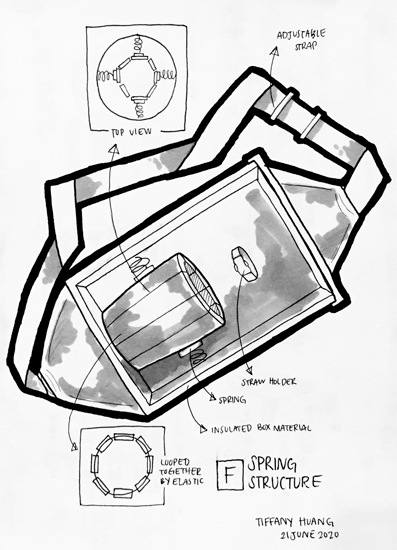 ADJUSTABLE
STRAP
TOP VIEW
STRAW HOLDER
SPRING
INSULATED BOX MATERIAL
LOOPED
TOGETHER
BY ELASTIC
F
SPRING
STRUCTURE
TIFFANY HUANG
21 JUNE 2020